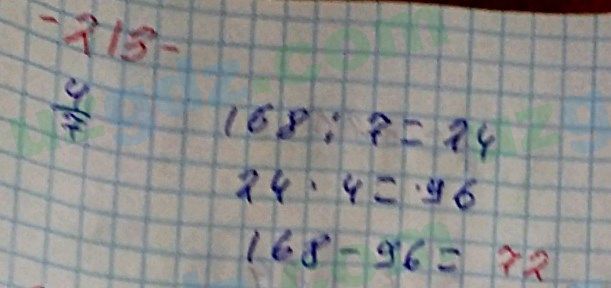 -215-
4/7
168 : 7 = 24
24 · 4 = 96
168 - 96 = 72